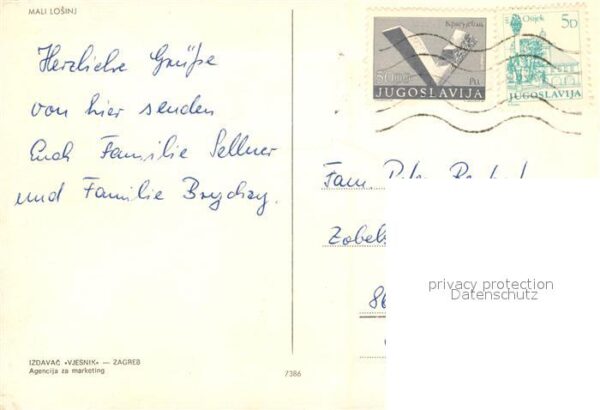 MALI LOŠINJ
Herzliche Grüße
von hier senden
Euch Familie Sellner
und Familie
Крагујевац
JUGOSLAVIJA
Osijek 5D
JUGOSLAVIJA
Fam.
privacy protection
Datenschutz
IZDAVAČ »VJESNIK« — ZAGREB
Agencija za marketing
7386